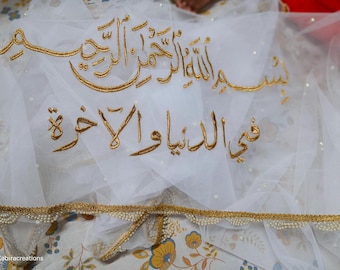 بسم الله الرحمن الرحيم
في الدنيا والآخرة